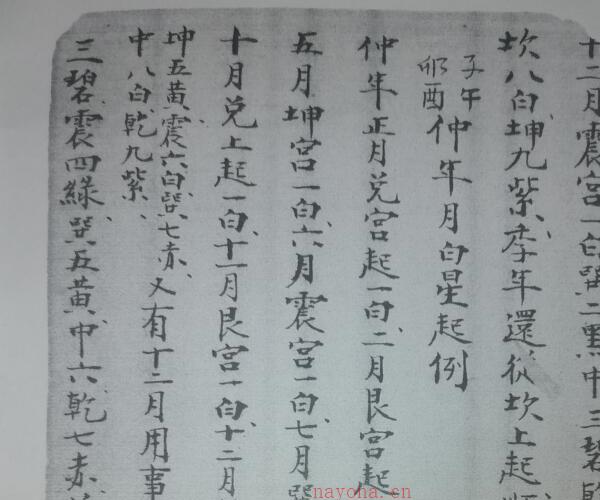 十二月震宫一白巽二黑中三碧乾
坎八白坤九紫季年還從坎上起順
子午
卯酉
仲年月白星起例
仲年正月兑宫起一白二月艮宫起
五月坤宫一白六月震宫一白七月巽
十月兑上起一白十一月艮宫一白十二月
坤五黄震六白巽七赤又有十二月用事
中八白乾九紫
三碧震四綠巽五黄中六乾七赤
nayona.cn